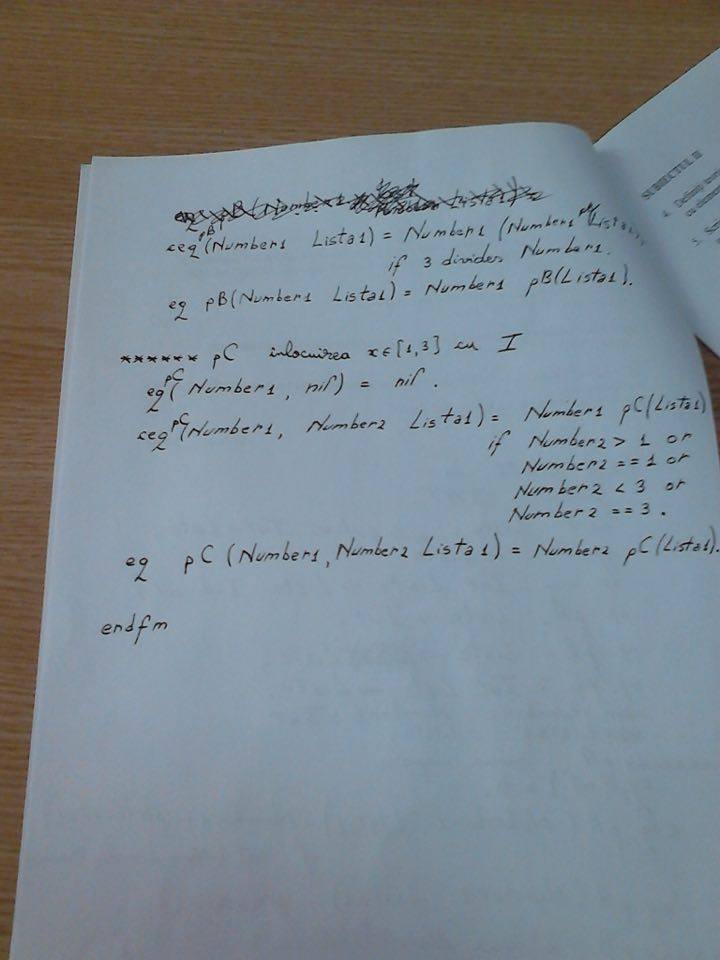 ceq pB(Number1 Lista1) = Number1 (Number1 pB(Lista1)
if 3 divides Number1.
eq pB(Number1 Lista1) = Number1 pB(Lista1).
****** pC inlocuirea x∈[1,3] cu I
eq pC(Number1, nil) = nil.
ceq pC(Number1, Number2 Lista1) = Number1 pC(Lista1)
if Number2 > 1 or
Number2 == 1 or
Number2 < 3 or
Number2 == 3.
eq pC (Number1, Number2 Lista1) = Number2 pC(Lista1).
endfm
SUBIECTUL II
4.
5.